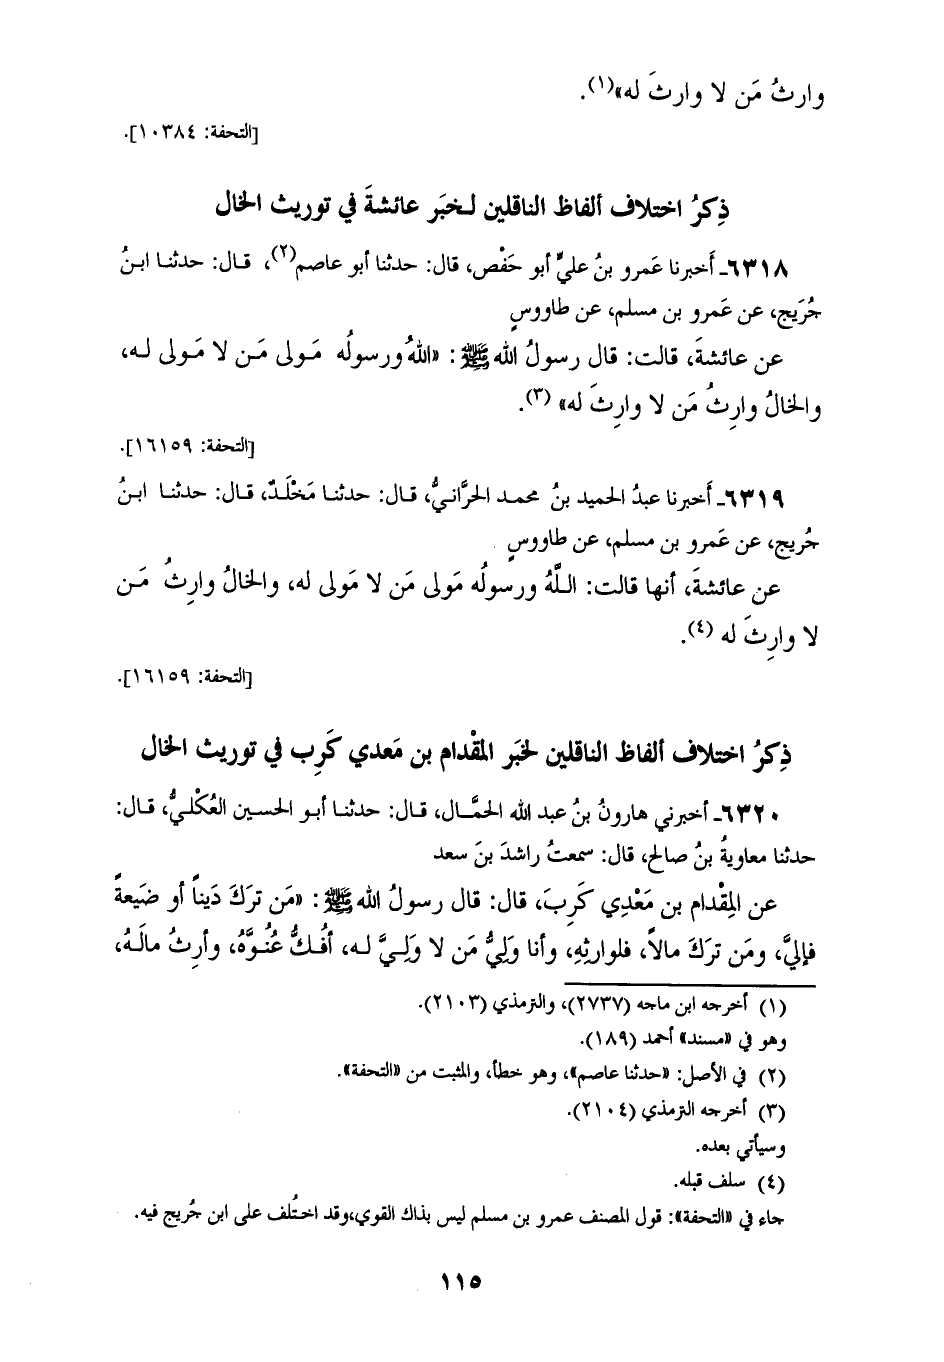 وارثُ مَن لا وارثَ له»(١).
[التحفة: ١٠٣٨٤].
ذِكرُ اختلاف ألفاظ الناقلين لـخبَر عائشةَ في توريث الخال
٦٣١٨ـ أَخبرنا عَمرو بنُ عليٍّ أبو حَفْص، قال: حدثنا أبو عاصم(٢)، قـال: حدثنـا ابـنُ
جُرَيج، عن عَمرو بن مسلم، عن طاووسٍ
عن عائشةَ، قالت: قال رسولُ الله ﷺ: «اللهُ ورسولُه مَـولى مَـن لا مَـولى لـه،
والخالُ وارِثُ مَن لا وارِثَ له» (٣).
[التحفة: ١٦١٥٩].
٦٣١٩ـ أَخبرنا عبدُ الحميد بنُ محمـد الحرَّانيُّ، قـال: حدثنـا مَخْلَـدٌ، قـال: حدثنـا ابـنُ
جُريج، عن عَمرو بن مسلم، عن طاووسٍ
عن عائشةَ، أنها قالت: اللَّهُ ورسولُه مَولى مَن لا مَولى له، والخالُ وارِثُ مَـن
لا وارِثَ له (٤).
[التحفة: ١٦١٥٩].
ذِكرُ اختلاف ألفاظ الناقلين لخبَر المقْدام بن مَعدي كَرِب في توريث الخال
٦٣٢٠ـ أخبرني هارونُ بنُ عبد الله الحمَّـال، قـال: حدثنـا أبـو الحسين العُكْلـيُّ، قـال:
حدثنا معاويةُ بنُ صالح، قال: سمعتُ راشدَ بنَ سعد
عن المِقْدام بن مَعْدِي كَرِبَ، قال: قال رسولُ الله ﷺ: «مَن تركَ دَيناً أو ضَيعةً
فإليَّ، ومَن تركَ مالاً، فلوارثِهِ، وأنا وَلِيُّ مَن لا وَلِـيَّ لـه، أفُـكُّ عُنُـوَّهُ، وأرِثُ مالَـهُ،
(١) أخرجه ابن ماجه (٢٧٣٧)، والترمذي (٢١٠٣).
وهو في «مسند» أحمد (١٨٩).
(٢) في الأصل: «حدثنا عاصم»، وهو خطأ، والمثبت من «التحفة».
(٣) أخرجه الترمذي (٢١٠٤).
وسيأتي بعده.
(٤) سلف قبله.
جاء في «التحفة»: قول المصنف عمرو بن مسلم ليس بذاك القوي،وقد اختُلف على ابن جُريج فيه.
١١٥